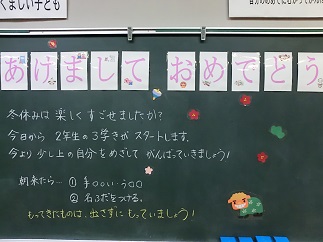 くましい子ども
あけまして おめでとう
冬休みは 楽しく すごせましたか？
今日から 2年生の3学きが スタートします。
今より 少し上の自分を めざして がんばっていきましょう！
朝来たら… ① 手○○い・う○○
② 名ふだをつける。
もってきたものは、出さずに もっていましょう！